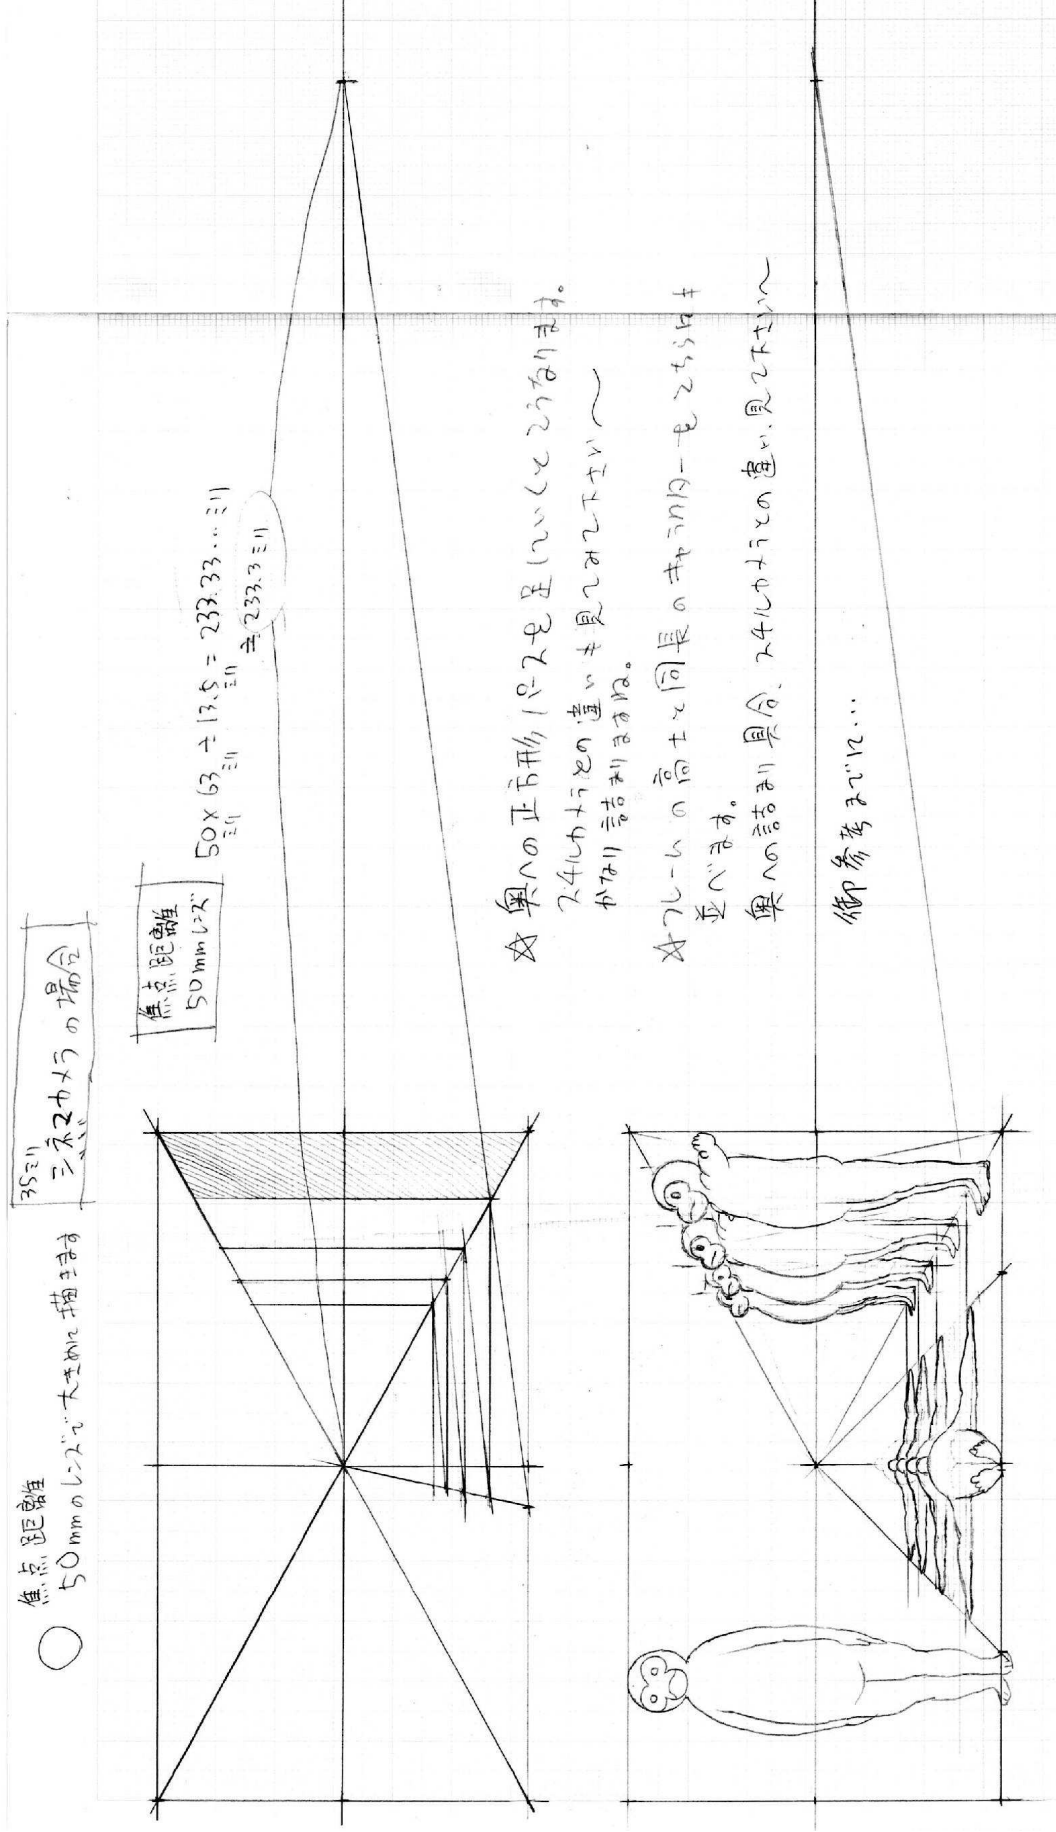 焦点距離
50mmのレンズで大きめに描きます
35ミリ
シネマカメラの場合
焦点距離
50mmレンズ
50×63÷13.5=233.33…ミリ
ミリ ミリ ミリ
≒233.3ミリ
☆奥への正方形パースを足していくとこうなります。
スチルカメラとの違いも見てみて下さい〜
かなり詰まりますね。
☆フレームの高さと同長のキャラクターをこちらにも
並べます。
奥への詰まり具合、スチルカメラとの違い、見て下さい〜
御参考までに…